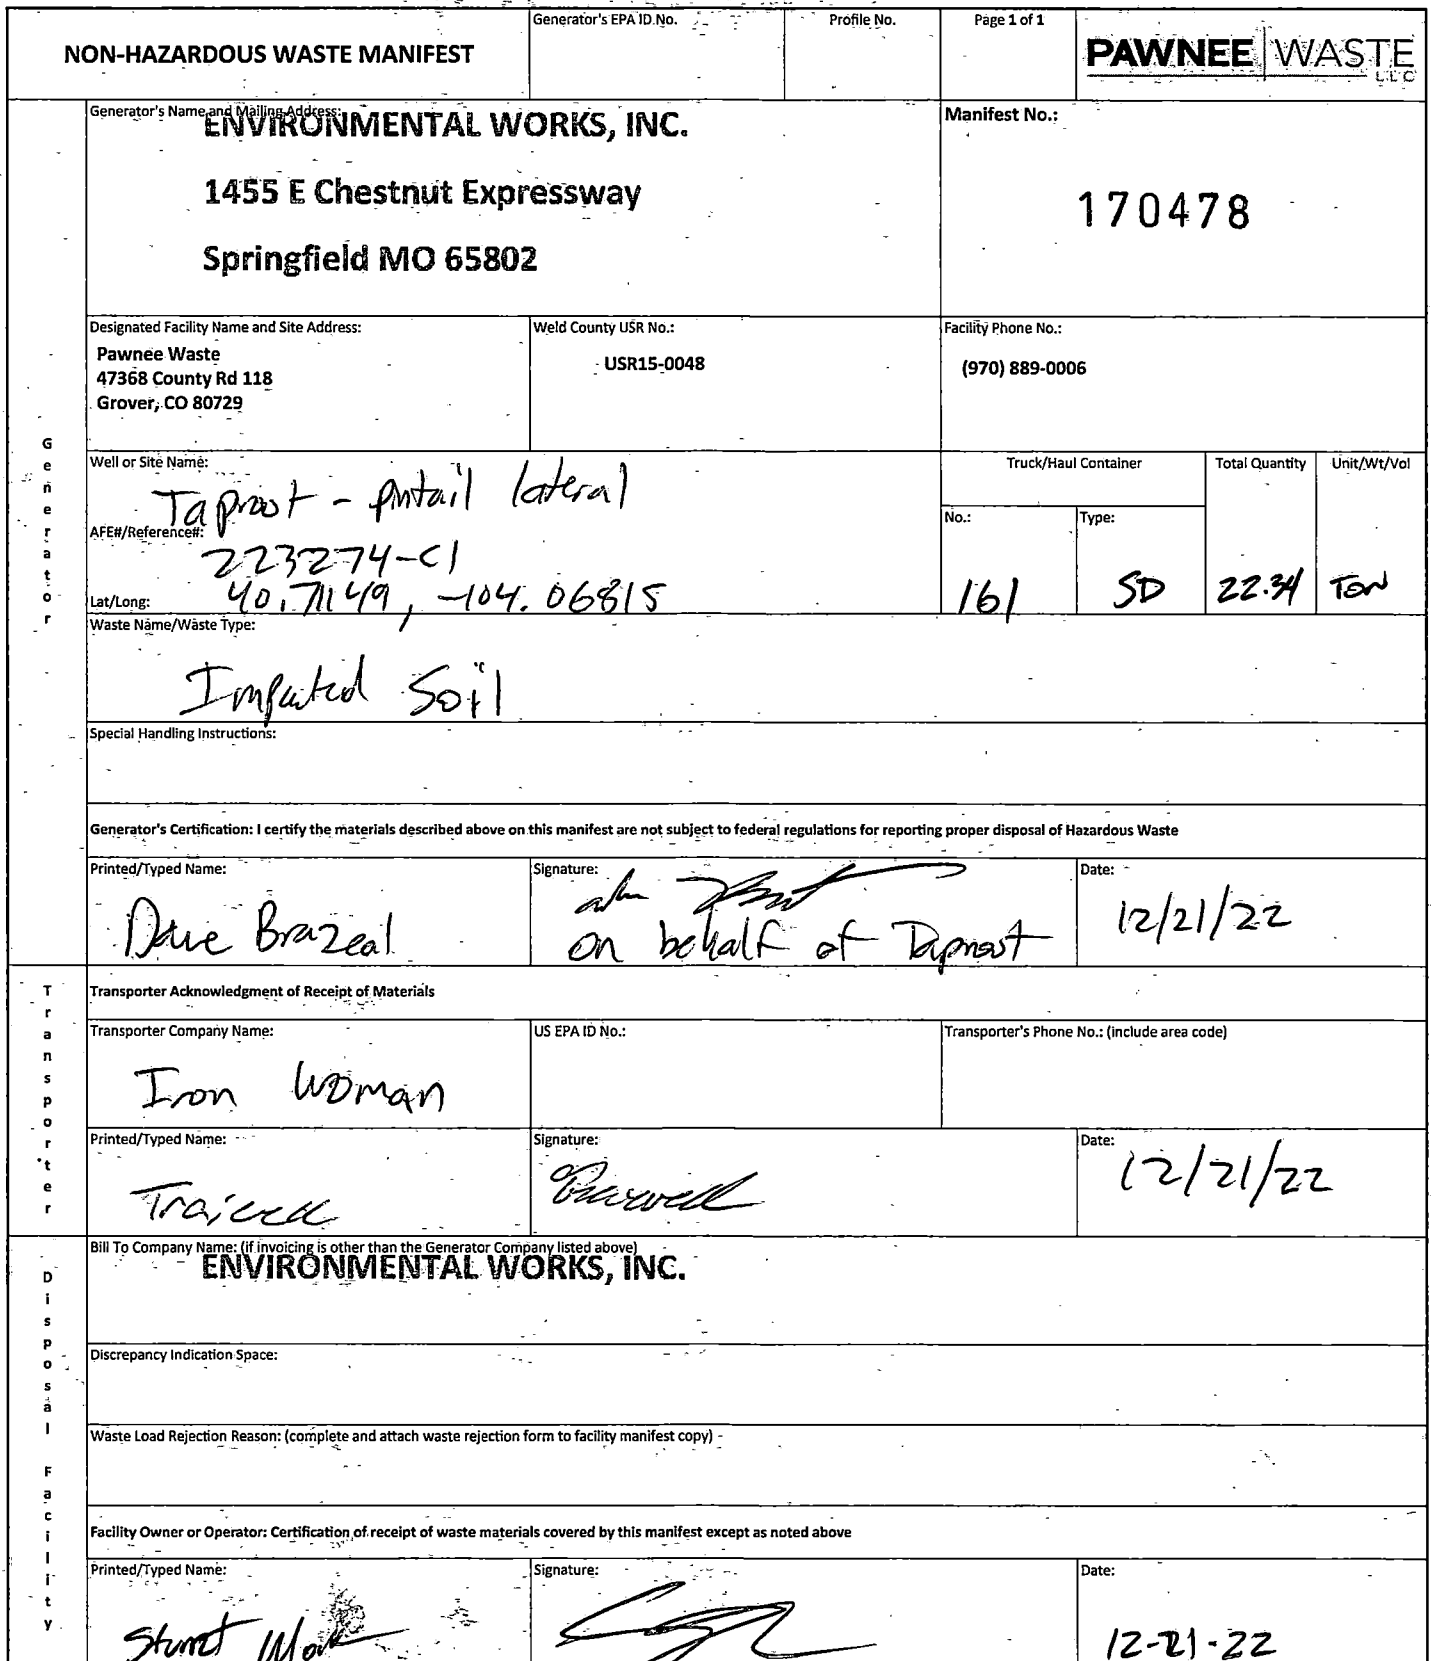 NON-HAZARDOUS WASTE MANIFEST
Generator's EPA ID No.
Profile No.
Page 1 of 1
PAWNEE WASTE
LLC
Generator's Name and Mailing Address:
ENVIRONMENTAL WORKS, INC.
1455 E Chestnut Expressway
Springfield MO 65802
Manifest No.:
170478
Designated Facility Name and Site Address:
Pawnee Waste
47368 County Rd 118
Grover, CO 80729
Weld County USR No.:
USR15-0048
Facility Phone No.:
(970) 889-0006
Generator
Well or Site Name:
Taproot - pintail lateral
AFE#/Reference#:
223274-C1
Lat/Long:
40.71149, -104.06815
Truck/Haul Container
Total Quantity
Unit/Wt/Vol
No.:
Type:
161
SD
22.34
Ton
Waste Name/Waste Type:
Impacted Soil
Special Handling Instructions:
Generator's Certification: I certify the materials described above on this manifest are not subject to federal regulations for reporting proper disposal of Hazardous Waste
Printed/Typed Name:
Dave Brazeal
Signature:
on behalf of Taproot
Date:
12/21/22
Transporter
Transporter Acknowledgment of Receipt of Materials
Transporter Company Name:
Iron Woman
US EPA ID No.:
Transporter's Phone No.: (include area code)
Printed/Typed Name:
Signature:
Date:
12/21/22
Disposal Facility
Bill To Company Name: (if invoicing is other than the Generator Company listed above)
ENVIRONMENTAL WORKS, INC.
Discrepancy Indication Space:
Waste Load Rejection Reason: (complete and attach waste rejection form to facility manifest copy)
Facility Owner or Operator: Certification of receipt of waste materials covered by this manifest except as noted above
Printed/Typed Name:
Signature:
Date:
12-21-22